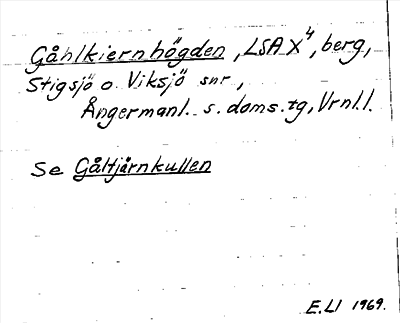 Gåhlkiernhögden, LSA X4, berg,
Stigsjö o. Viksjö snr,
Ångermanl. s. doms. tg, Vrnl.l.
Se Gåltjärnkullen
E.LI 1969.